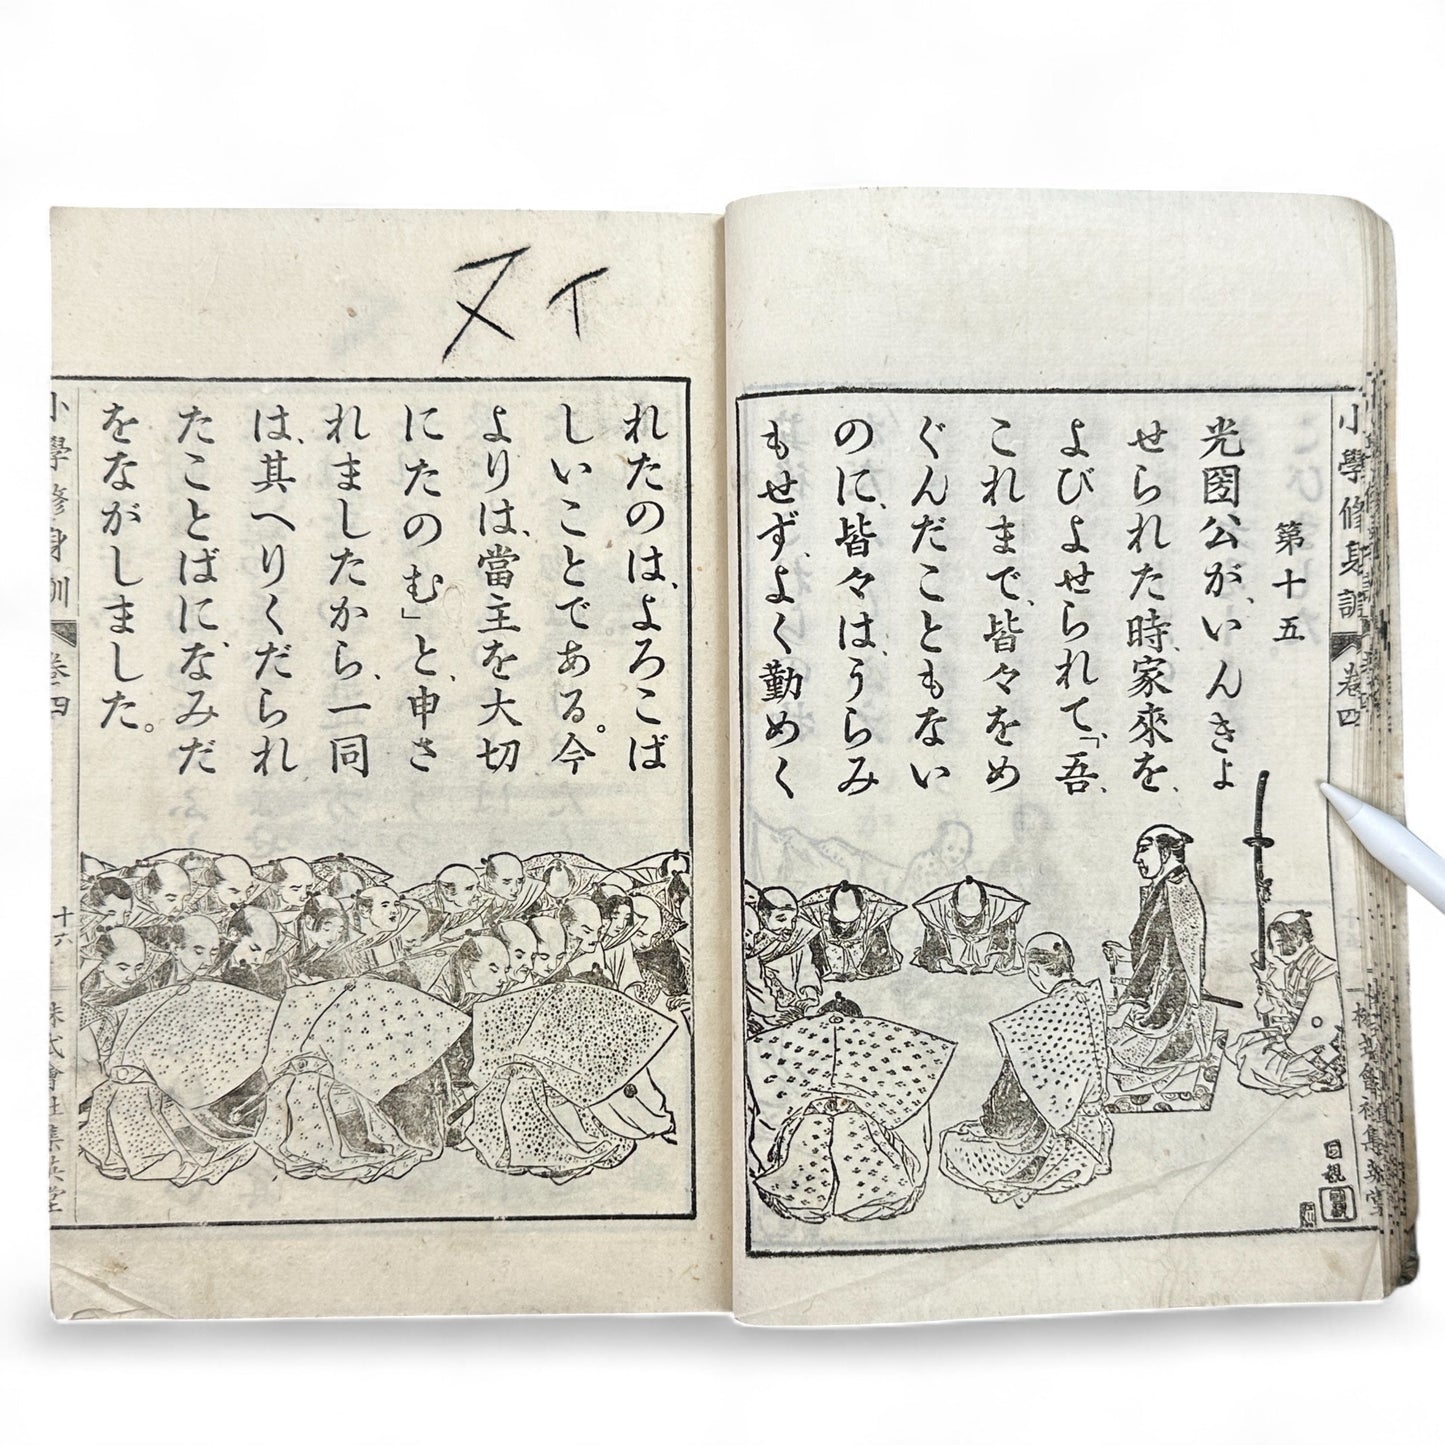 小學修身訓 卷四
第十五
光圀公が、いんきょ
せられた時、家來を、
よびよせられて、「吾、
これまで、皆々をめ
ぐんだこともない
のに、皆々は、うらみ
もせず、よく勤めく
れたのは、よろこば
しいことである。今
よりは、當主を大切
にたのむ」と、申さ
れましたから、一同
は、其へりくだられ
たことばに、なみだ
をながしました。
小學修身訓 卷四
十六
株式會社集英堂
ヌイ